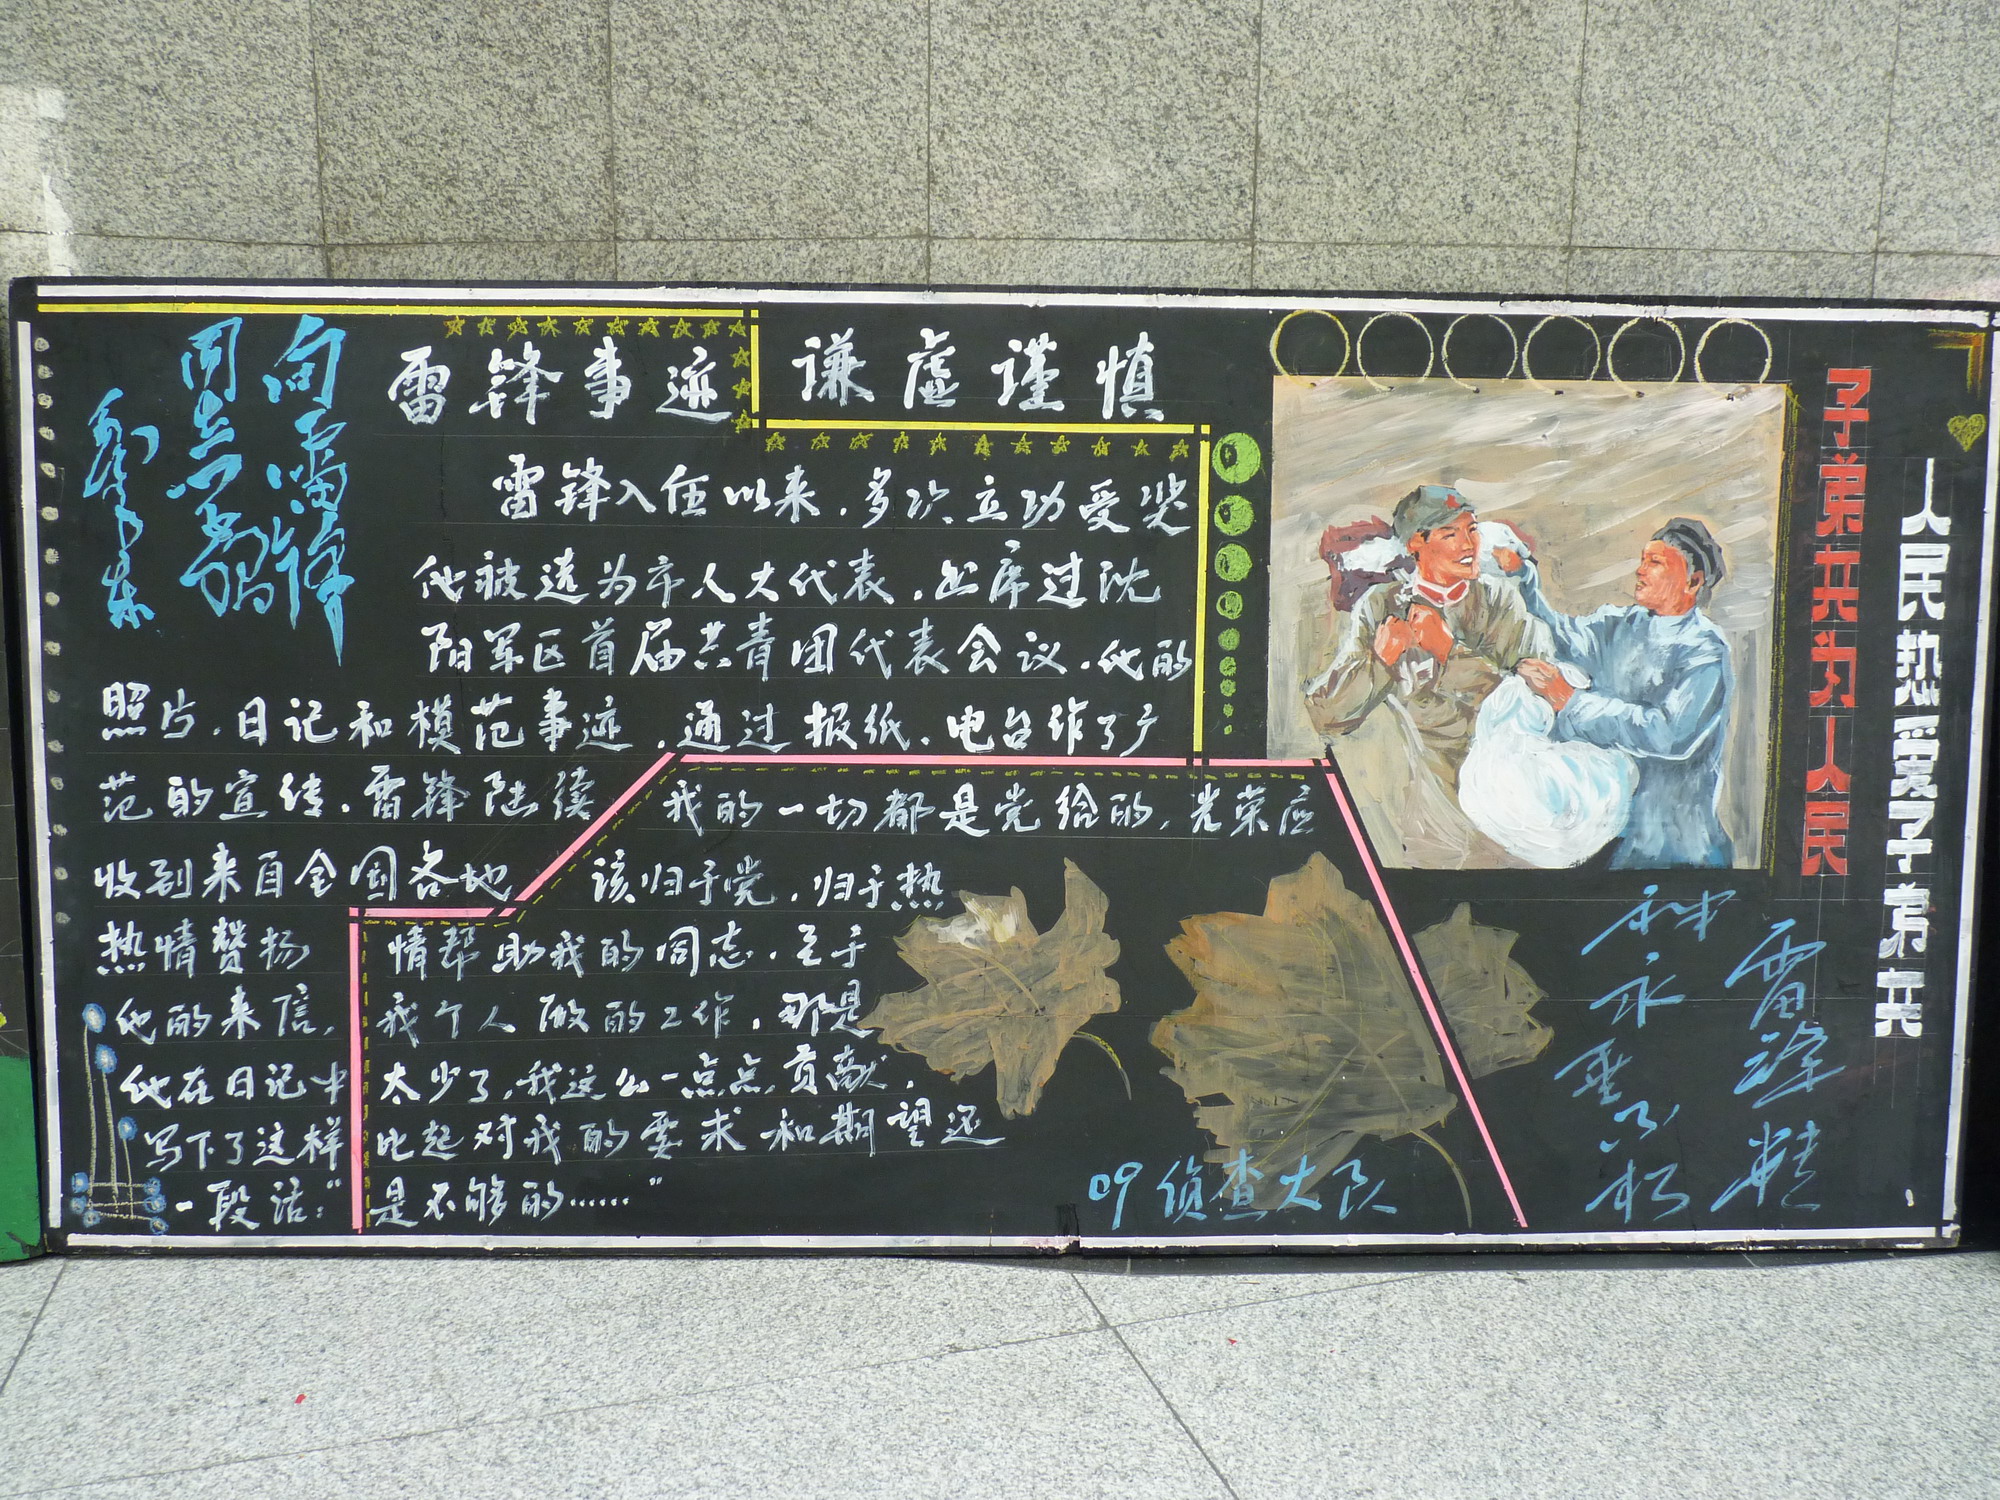 向雷锋
同志学习
毛泽东
雷锋事迹 谦虚谨慎
雷锋入伍以来，多次立功受奖
他被选为市人大代表，出席过沈
阳军区首届共青团代表会议。他的
照片，日记和模范事迹，通过报纸、电台作了广
范的宣传，雷锋陆续
收到来自全国各地
热情赞扬
他的来信，
他在日记中
写下了这样
一段话：“
我的一切都是党给的，光荣应
该归于党，归于热
情帮助我的同志，至于
我个人做的工作，那是
太少了，我这么一点点贡献，
比起对我的要求和期望还
是不够的……”
09侦查大队
子弟兵为人民
人民热爱子弟兵
雷锋精
神永垂不朽